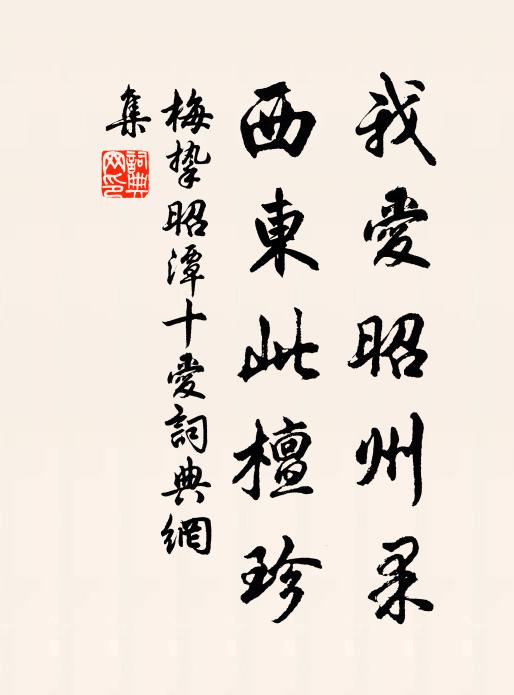 我愛昭州果
西東此檀珍
梅摯昭潭十愛詞典網
集
詞典
网印